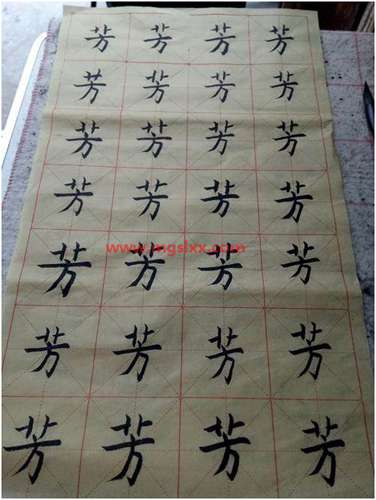 芳 芳 芳 芳
芳 芳 芳 芳
芳 芳 芳 芳
芳 芳 芳 芳
芳 芳 芳 芳
www.mgslxx.com
芳 芳 芳 芳
芳 芳 芳 芳